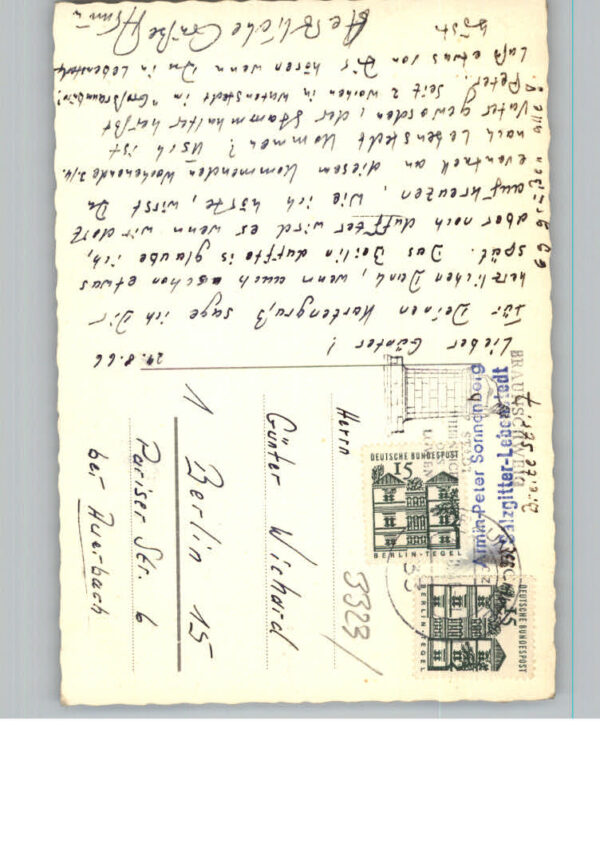 29.8.66
Lieber Günter!
Für Deinen Kartengruß sage ich Dir
herzlichen Dank, wenn auch schon etwas
spät. Das Berlin dufte is glaube ich,
aber noch dufter wird es wenn wir dort
aufkreuzen, wie ich hörte, wirst Du
eventuell an diesem kommenden Wochenende 3/4.
nach Lebenstedt kommen? Usch ist
Vater geworden, der Stammhalter heißt
Peter. Seit 2 Wochen in Watenstedt im "Großraumbüro".
Laß etwas von Dir hören wenn Du in Lebenstedt
bist.
Herzliche Grüße Armin
Herrn
Günter Wichard
1 Berlin 15
Pariser Str. 6
bei Auerbach
3323/
DEUTSCHE BUNDESPOST
15
BERLIN-TEGEL
DEUTSCHE BUNDESPOST
15
BERLIN-TEGEL
BRAUNSCHWEIG
Armin-Peter Sonnenberg
Salzgitter-Lebenstedt